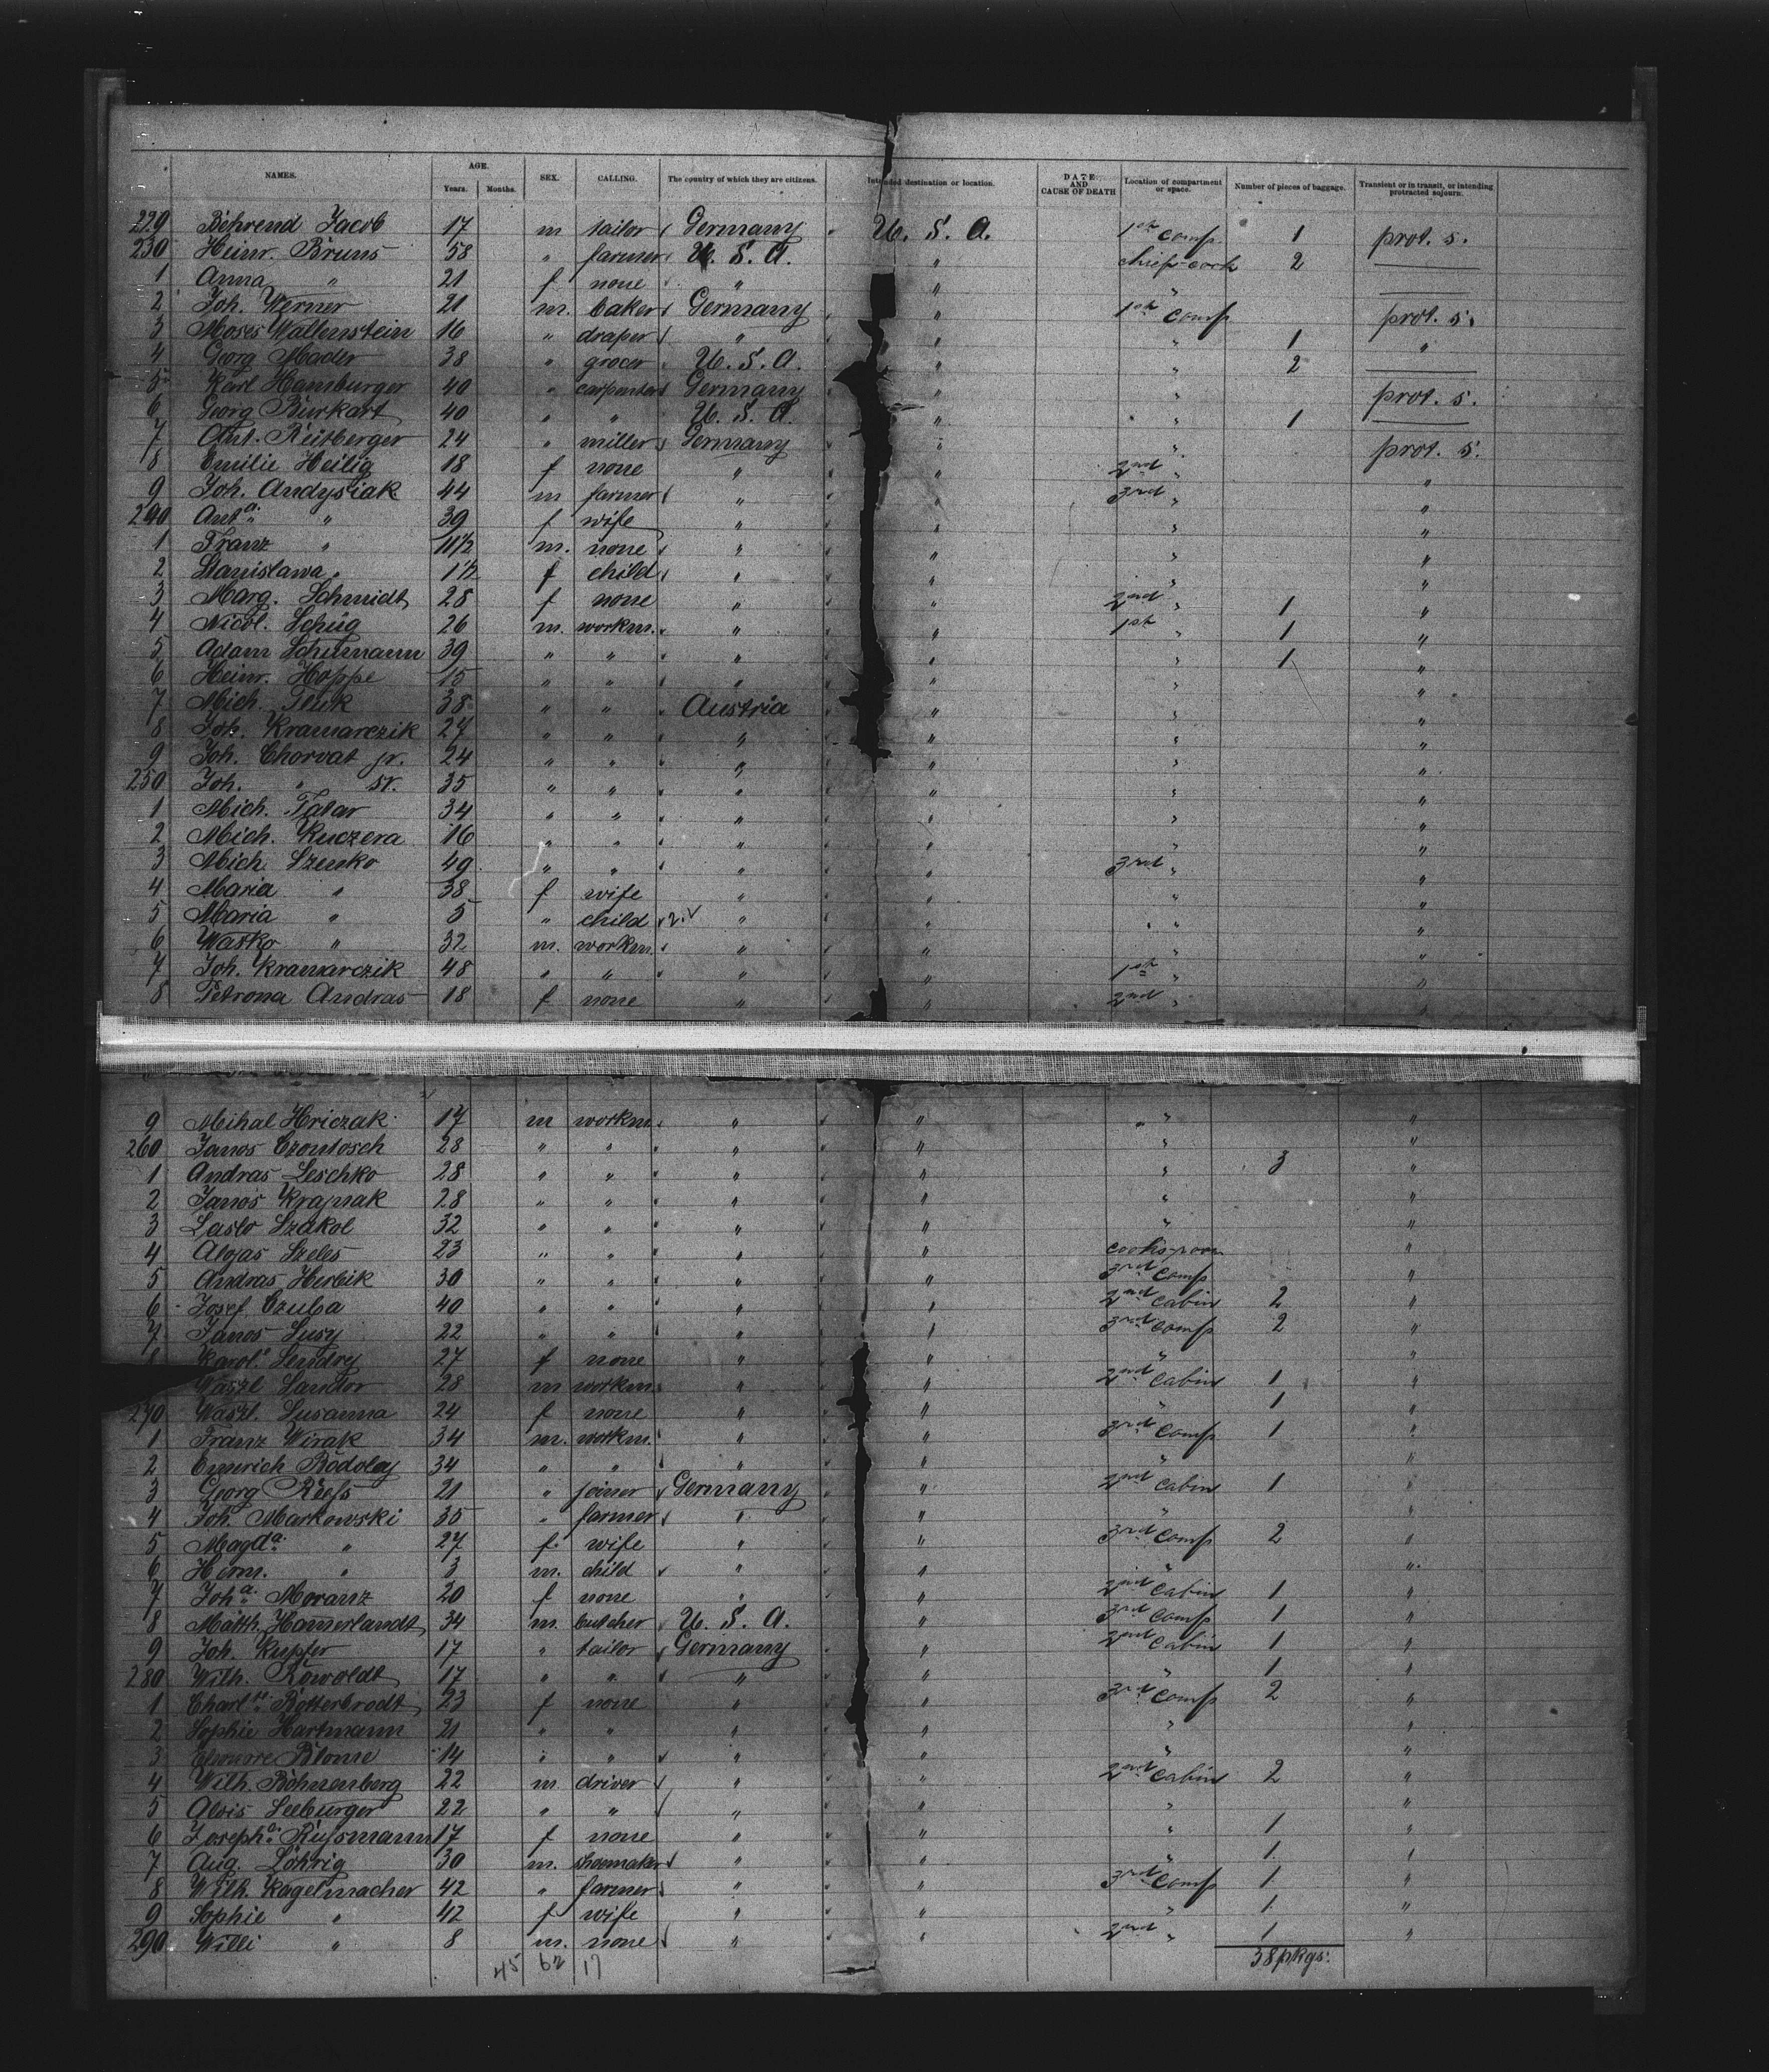 NAMES. AGE. Years. Months. SEX. CALLING. The country of which they are citizens. Intended destination or location. DATE AND CAUSE OF DEATH Location of compartment or space. Number of pieces of baggage. Transient or in transit, or intending protracted sojourn.
229 Behrend Jacob 17 m tailor Germany U. S. A. 1st comp. 1 prot. s.
230 Heinr. Bruns 58 " farmer U. S. A. " 2
1 Anna " 21 f none " " "
2 Joh. Werner 21 m. baker Germany " 1st comp prot. s.
3 Moses Wallenstein 16 " draper " " " 1 "
4 Georg Mader 38 " grocer U. S. A. " " 2
5 Karl Hamburger 40 " carpenter Germany " " prot. s.
6 Georg Burkart 40 " " U. S. A. " " 1
7 Ant. Reitberger 24 " miller Germany " " prot. s.
8 Emilie Heilig 18 f none " " 2nd " "
9 Joh. Andysiak 44 m farmer " " 3rd " "
240 Anta. " 39 f wife " " " "
1 Franz " 11½ m. none " " " "
2 Stanislawa " 1½ f child " " " "
3 Marg. Schmidt 28 f none " " 2nd " 1 "
4 Nicol. Schüg 26 m. workm. " " 1st " 1 "
5 Adam Schumann 39 " " " " " 1 "
6 Heinr. Hoppe 15 " " " " " "
7 Mich. 38 " " Austria " " "
8 Joh. Kramarczik 27 " " " " " "
9 Joh. Chorvat jr. 24 " " " " " "
250 Joh. " sr. 35 " " " " " "
1 Mich. Tatar 34 " " " " " "
2 Mich. Kuczera 16 " " " " " "
3 Mich. Szenko 49 " " " " 3rd " "
4 Maria " 38 f wife " " " "
5 Maria " 5 " child " " " "
6 Wasko " 32 m. workm. " " " "
7 Joh. Kramarczik 48 " " " " 1st " "
8 Petrona Andras 18 f none " " 2nd " "
9 Mihal Hriczak 17 m workm. " " " "
260 Janos Czontosch 28 " " " " " "
1 Andras Leschko 28 " " " " " 3 "
2 Janos Krajnak 28 " " " " " "
3 Laslo Szakol 32 " " " " " "
4 Algas Szeles 23 " " " " cooks room "
5 Andras Herbik 30 " " " " 3rd comp "
6 Josef Czuba 40 " " " " 2nd cabin 2 "
7 Janos Susy 22 " " " " 3rd comp 2 "
Karole Sendrey 27 f none " " " "
Waszl Sandor 28 m workm. " " 2nd cabin 1 "
270 Waszl. Susanna 24 f none " " " 1 "
1 Franz Wirak 34 m. workm. " " 3rd comp 1 "
2 Emerich Bodoley 34 " " " " " "
3 Georg Riess 21 " joiner Germany " 2nd cabin 1 "
4 Joh. Markowski 35 " farmer " " " "
5 Magda. " 27 f. wife " " 3rd comp 2 "
6 Herm. " 3 m. child " " " "
7 Joha. Moranz 20 f none " " 2nd cabin 1 "
8 Matth. Hamerlandt 34 m. butcher U. S. A. " 3rd comp 1 "
9 Joh. Kupfer 17 " tailor Germany " 2nd cabin 1 "
280 Wilh. Rowoldt 17 " " " " " 1 "
1 Charlte Botterbrodt 23 f none " " 3rd comp 2 "
2 Sophie Hartmann 21 " " " " " "
3 Eleonore Blome 14 " " " " " "
4 Wilh. Böhnenberg 22 m. driver " " 2nd cabin 2 "
5 Alois Seeburger 22 " " " " " "
6 Josepha. Russmann 17 f none " " " 1 "
7 Aug. Löhrig 30 m. shoemaker " " " 1 "
8 Wilh. Kagelmacher 42 " farmer " " 3rd comp 1 "
9 Sophie " 42 f wife " " " 1 "
290 Willi " 8 m. none " " 2nd " 1 "
45 62 17 38 pkgs.